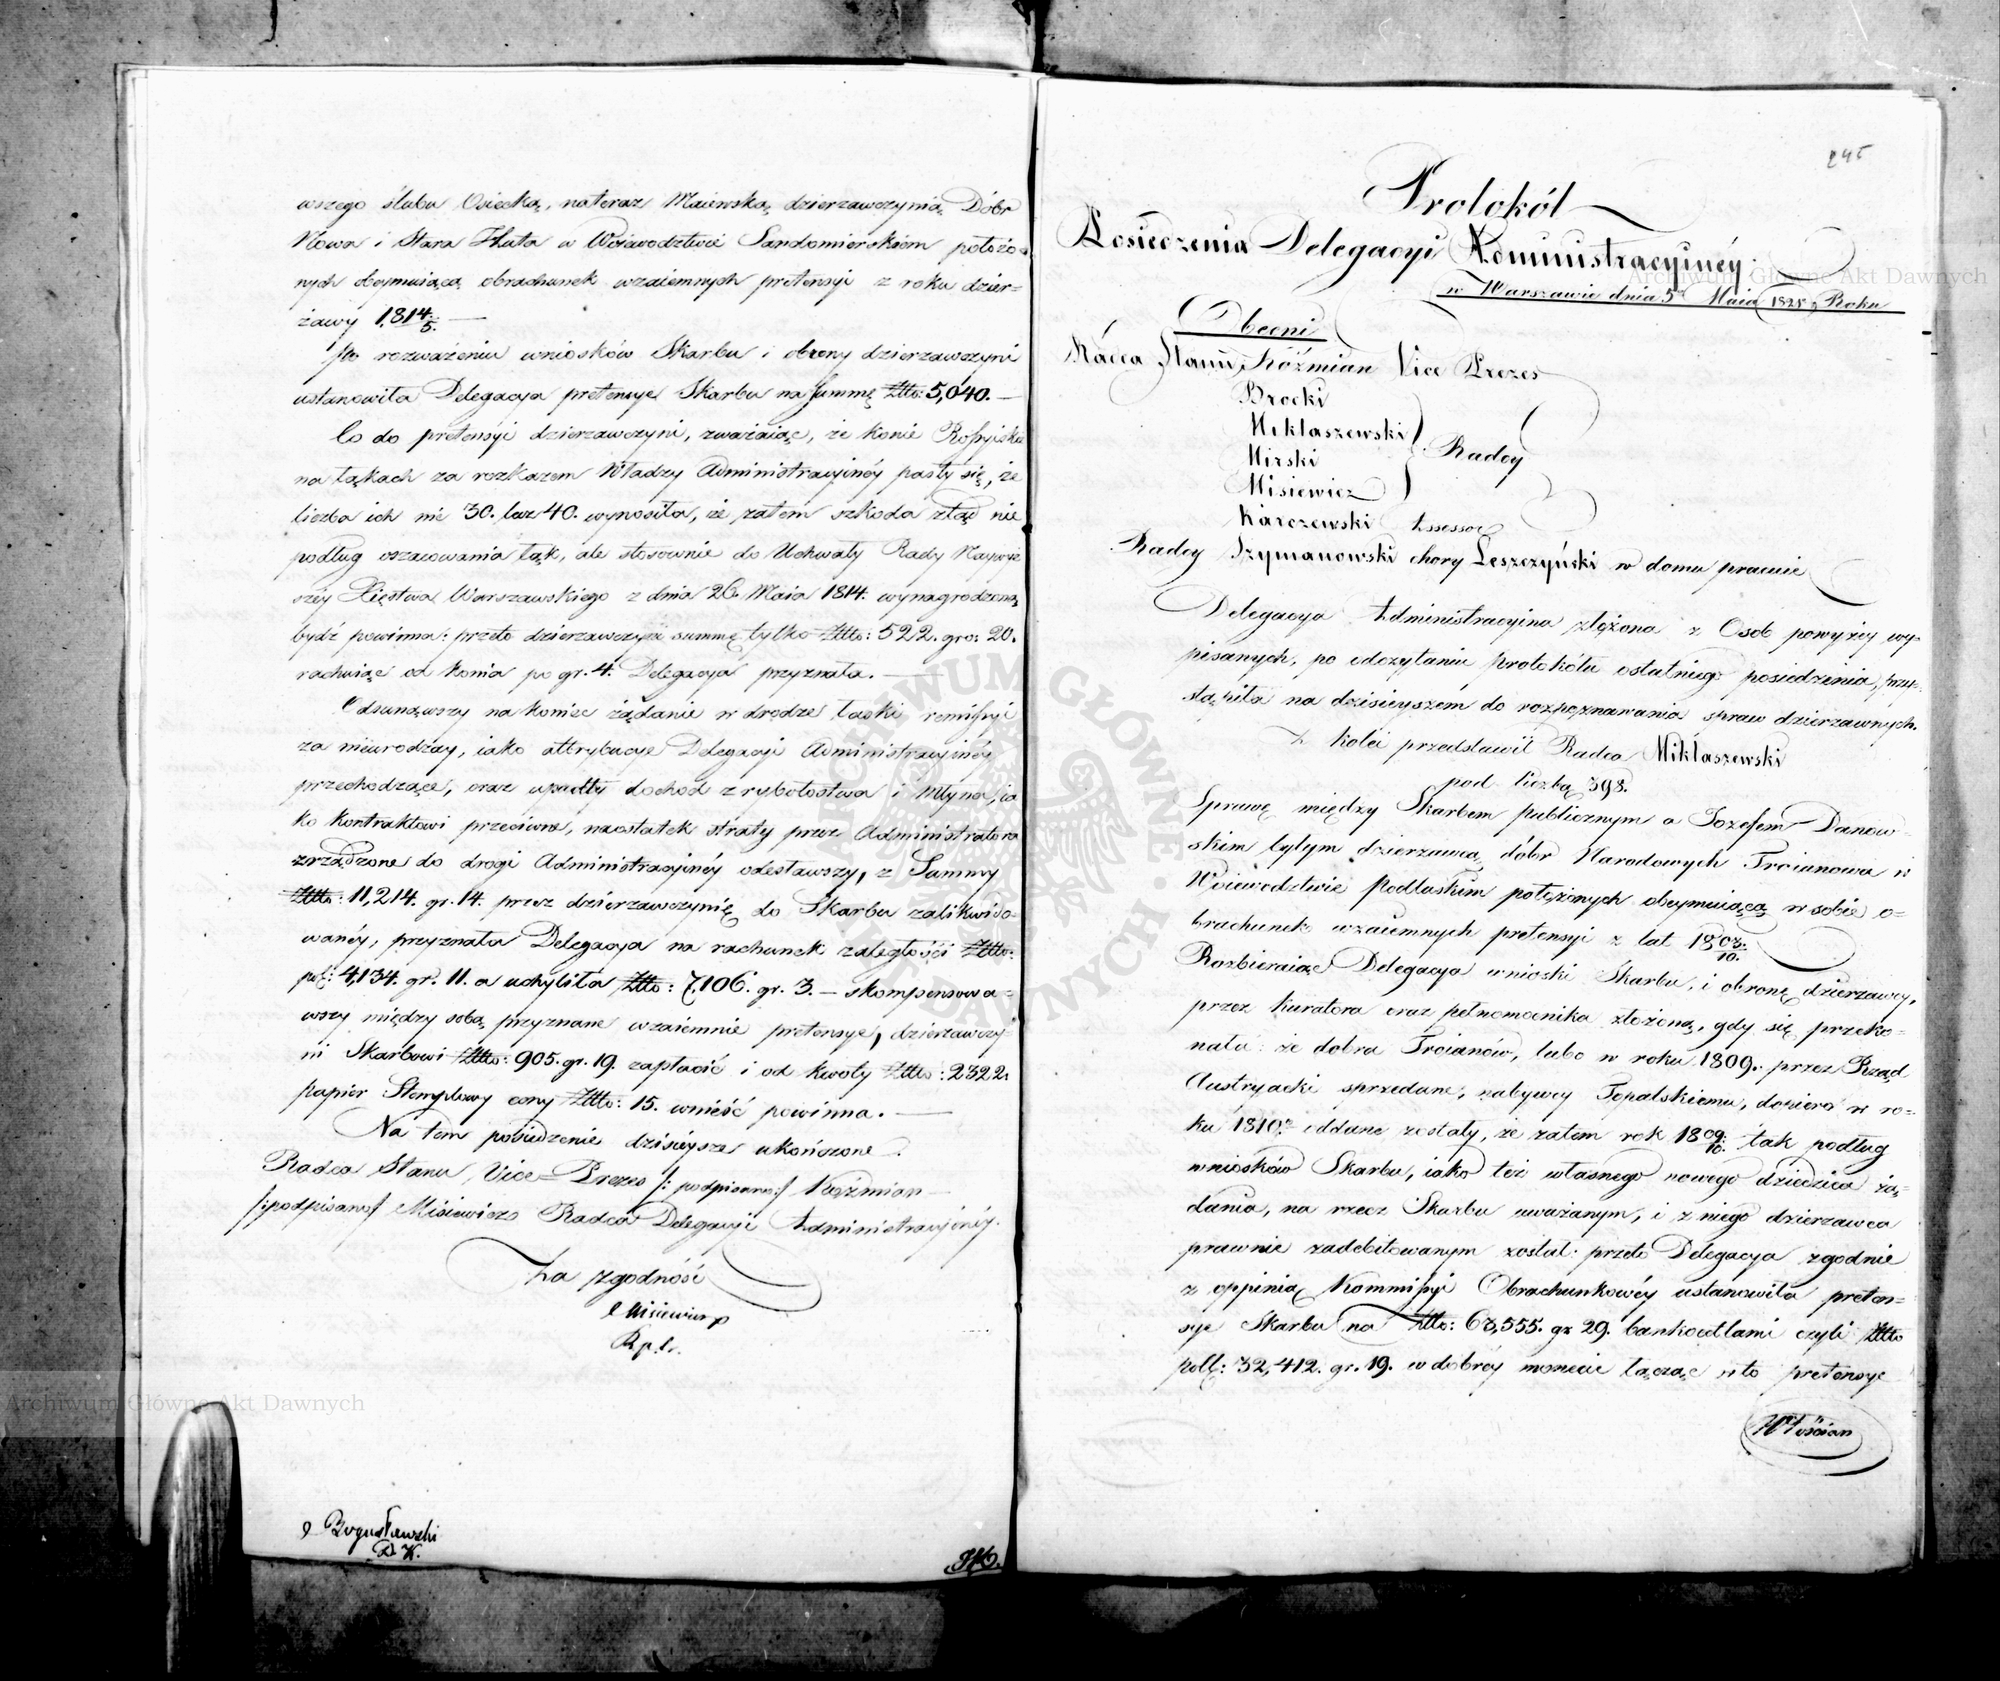 wszego ślubu Osiecką, nateraz Maiewską dzierzawczynią Dóbr
Nowa i Stara Huta w Woiewodztwie Sandomierskiem położo-
nych obeymuiącą obrachunek wzaiemnych pretensyi z roku dzier-
żawy 1814/5. —
Po rozważeniu wniosków Skarbu i obrony dzierzawczyni
ustanowiła Delegacya pretensye Skarbu na summę Złto: 5,040. —
Co do pretensyi dzierzawczyni, zważaiąc, że konie Rossyiskie
na łąkach za rozkazem Władzy Administracyinéy pasły się, że
liczba ich nie 30. lecz 40. wynosiła, że zatem szkoda ztąd nie
podług oszacowania łąk, ale stosownie do Uchwały Rady Naywyż
széy Xięstwa Warszawskiego z dnia 26. Maia 1814. wynagrodzoną
bydź powinna: przeto dzierzawczyni summę tylko Złto: 522. gro: 20.
rachuiąc od konia po gr. 4. Delegacya przyznała. —
Odsunąwszy na koniec żądanie w drodze łaski remissyi
za nieurodzay, iako attrybucye Delegacyi Administracyinéy
przechodzące, oraz upadły dochod z rybołostwa i Młyna, ia
ko kontraktowi przeciwne, naostatek straty przez Administratora
zrządzone do drogi Administracyinéy odesławszy, z Summy
Złto: 11,214. gr. 14. przez dzierzawczynię do Skarbu zalikwido-
wanéy, przyznała Delegacya na rachunek zaległości Złto:
pol: 4,134. gr. 11. a uchyliła Złto: 7,106. gr. 3. — skompensowa-
wszy między sobą przyznane wzaiemnie pretensye, dzierzawczy-
ni Skarbowi Złto: 905. gr. 19. zapłacić i od kwoty Złto: 2322.
papier Stemplowy ceny Złto: 15. wnieść powinna. —
Na tem posiedzenie dzisieysze ukończone.
Radca Stanu, Vice-Prezes /: podpisano:/ Koźmian —
/:podpisano/ Misiewicz Radca Delegacyi Administracyinéy.
Za zgodność
Misiewicz
Bogusławski
245
Protokół
Posiedzenia Delegacyi Administracyinéy
w Warszawie dnia 5 Maia 1825 Roku
Obecni
Radca Stanu Koźmian Vice Prezes
Brocki
Miklaszewski
Mirski Radcy
Misiewicz
Karczewski Assessor
Radcy Szymanowski chory Leszczyński w domu pracuie
Delegacya Administracyina złożona z Osob powyżey wy-
pisanych, po odczytaniu protokółu ostatniego posiedzenia, przy-
stąpiła na dzisieyszém do rozpoznawania spraw dzierzawnych.
Z kolei przedstawił Radca Miklaszewski
pod liczbą 398.
Sprawę między Skarbem publicznym a Jozefem Danow-
skim byłym dzierzawcą dóbr Narodowych Troianowa w
Woiewodztwie Podlaskim położonych obeymuiącą w sobie o-
brachunek wzaiemnych pretensyi z lat 180?/10.
Rozbieraiąc Delegacya wnioski Skarbu, i obronę dzierzawcy,
przez kuratora oraz pełnomocnika złożoną, gdy się przeko-
nała: że dobra Troianów, lubo w roku 1809. przez Rząd
Austryacki sprzedane, nabywcy Topalskiemu, dopiero w ro-
ku 1810. oddane zostały, że zatem rok 1809/10. tak podług
wniosków Skarbu, iako też własnego nowego dziedzica żą-
dania, na rzecz Skarbu uważanym, i z niego dzierzawca
prawnie zadebitowanym został: przeto Delegacya zgodnie
z oppinią Kommissyi Obrachunkowéy ustanowiła preten-
sye Skarbu na Złto: 63,555. gr 29. bankocetlami czyli Złto
poll: 32,412. gr. 19. w dobréy monecie łącząc w to pretensye
Włościan